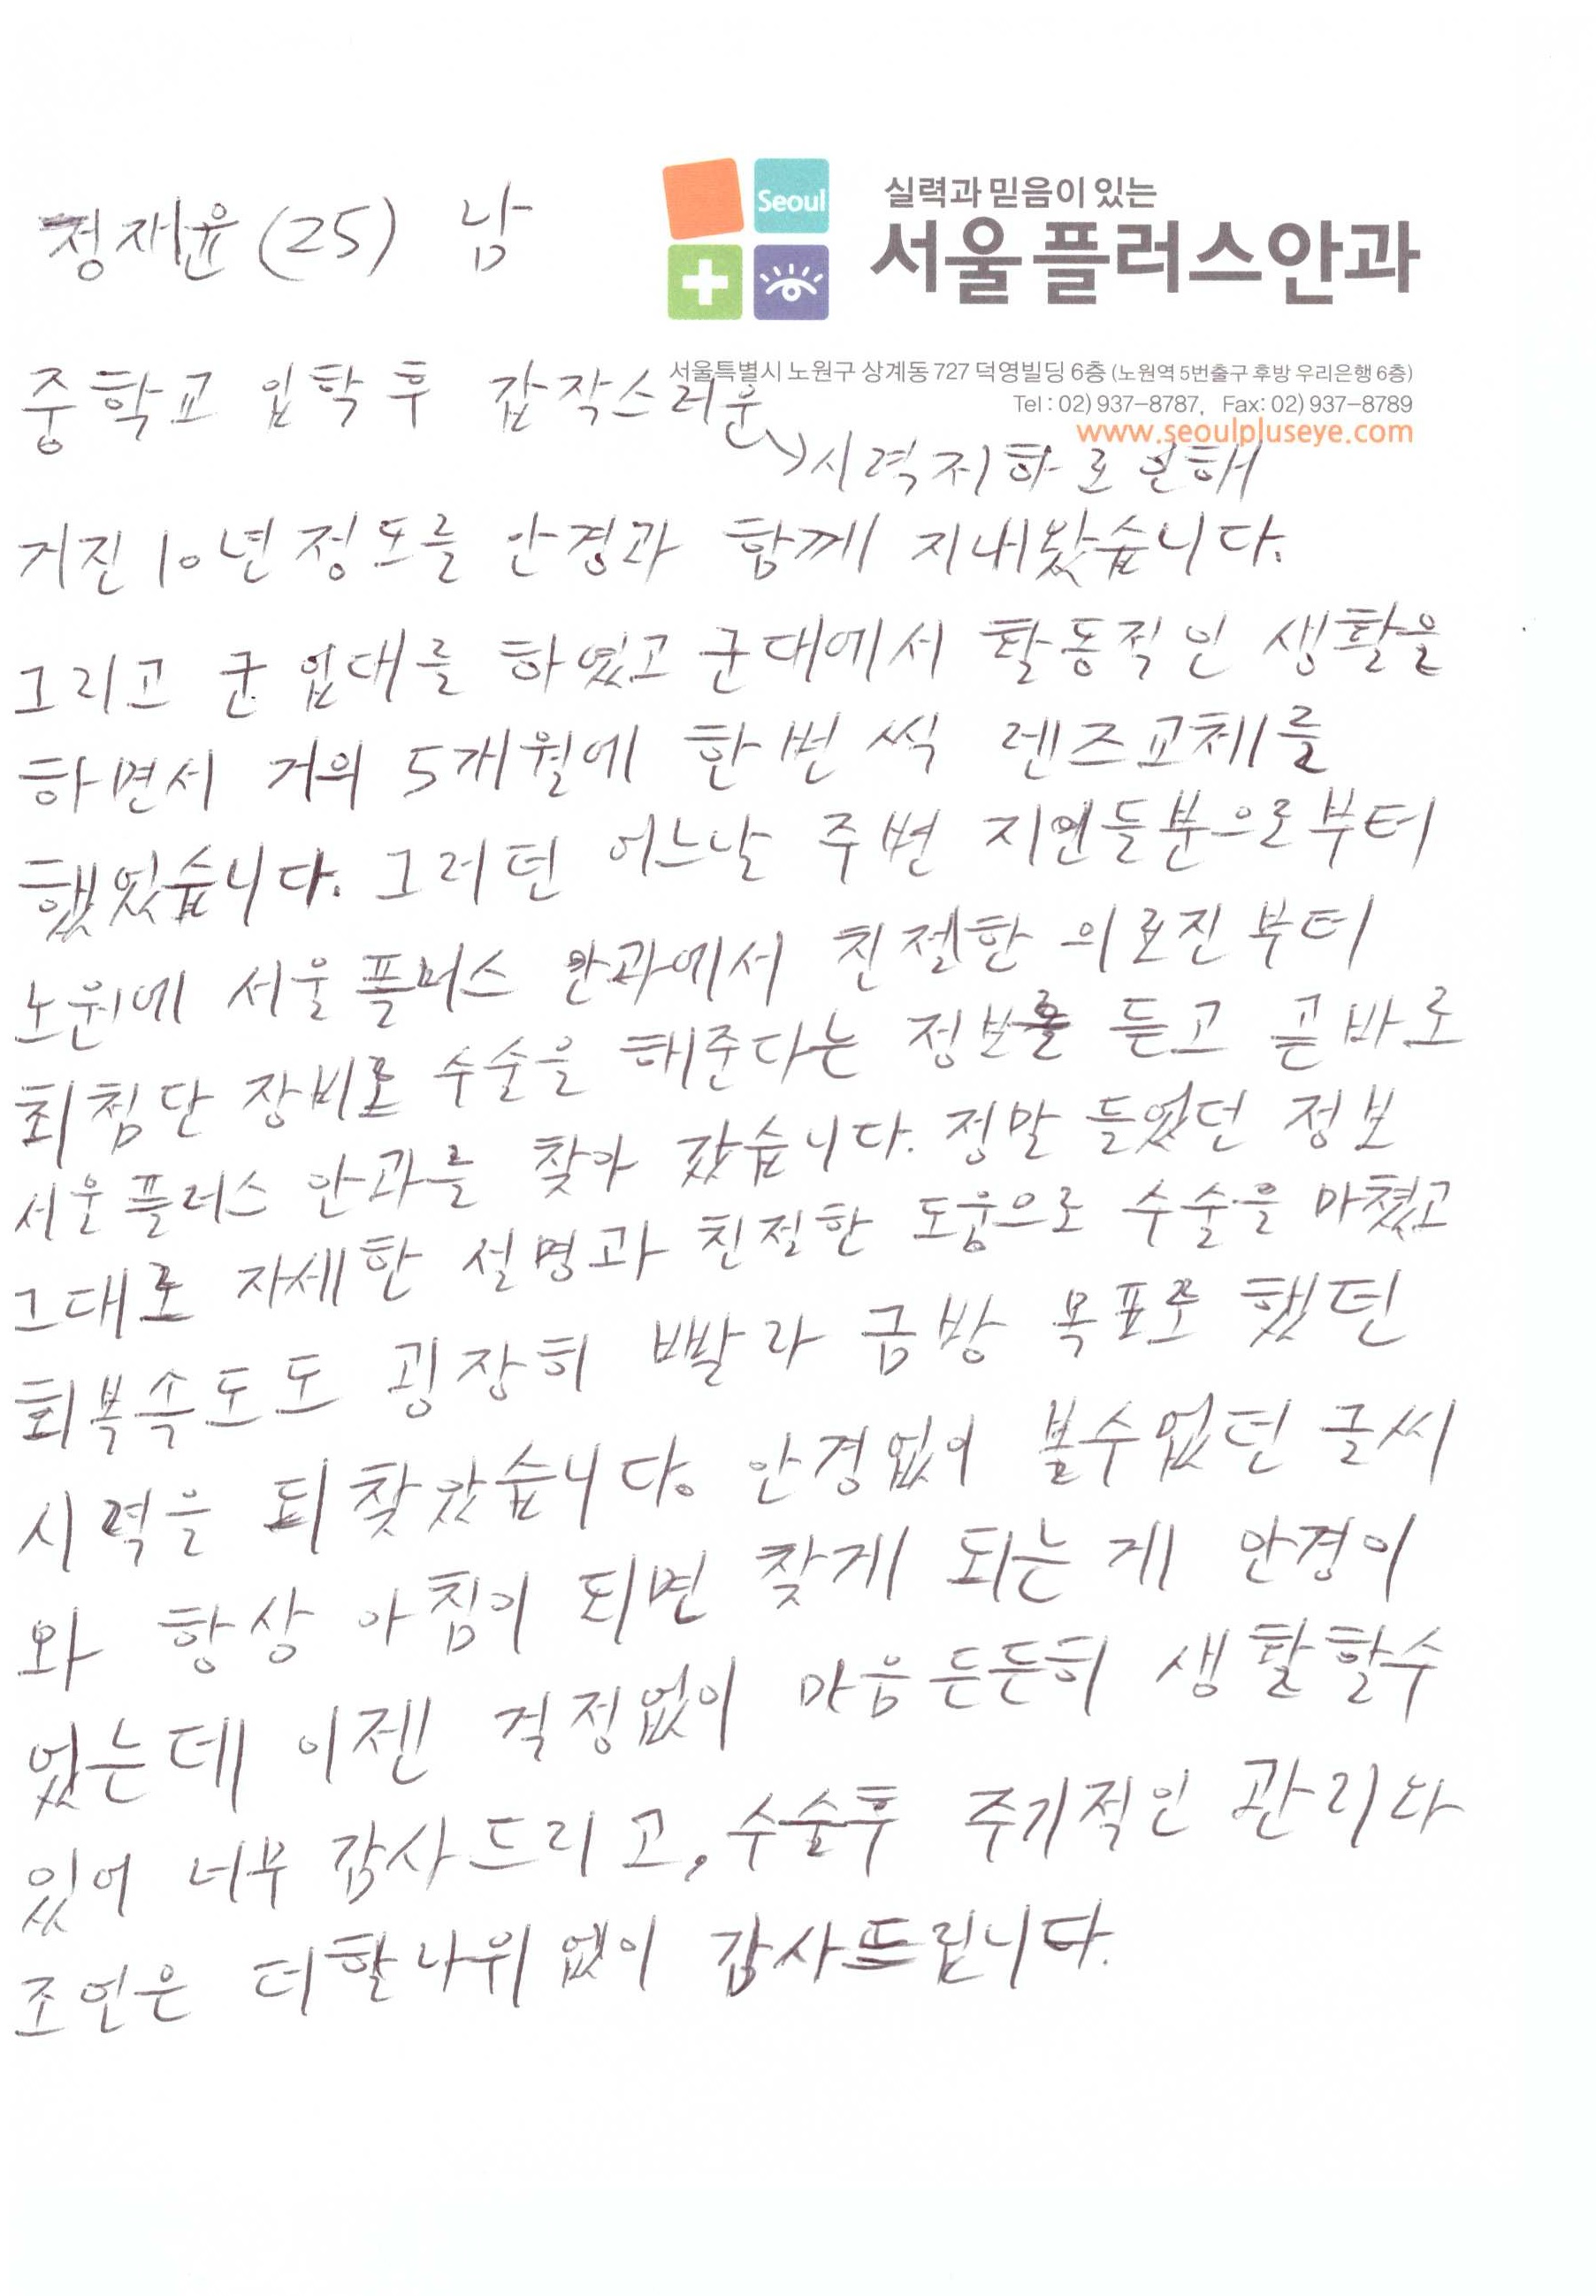 정재윤 (25) 남
Seoul
실력과 믿음이 있는
서울플러스안과
서울특별시 노원구 상계동 727 덕영빌딩 6층 (노원역 5번출구 후방 우리은행 6층)
Tel : 02) 937-8787, Fax: 02) 937-8789
www.seoulpluseye.com
중학교 입학 후 갑작스러운
시력저하로 인해
거진 10년 정도를 안경과 함께 지내왔습니다.
그리고 군 입대를 하였고 군대에서 활동적인 생활을
하면서 거의 5개월에 한번 씩 렌즈교체를
했었습니다. 그러던 어느날 주변 지인들분으로부터
노원에 서울플러스 안과에서 친절한 의료진부터
최첨단 장비로 수술을 해준다는 정보를 듣고 곧바로
서울플러스 안과를 찾아 갔습니다. 정말 들었던 정보
그대로 자세한 설명과 친절한 도움으로 수술을 마쳤고
회복속도도 굉장히 빨라 금방 목표로 했던
시력을 되찾았습니다. 안경없이 볼수없던 글씨
와 항상 아침이 되면 찾게 되는 게 안경이
었는데 이젠 걱정없이 마음 든든히 생활할수
있어 너무 감사드리고, 수술후 주기적인 관리와
조언은 더할나위 없이 감사드립니다.